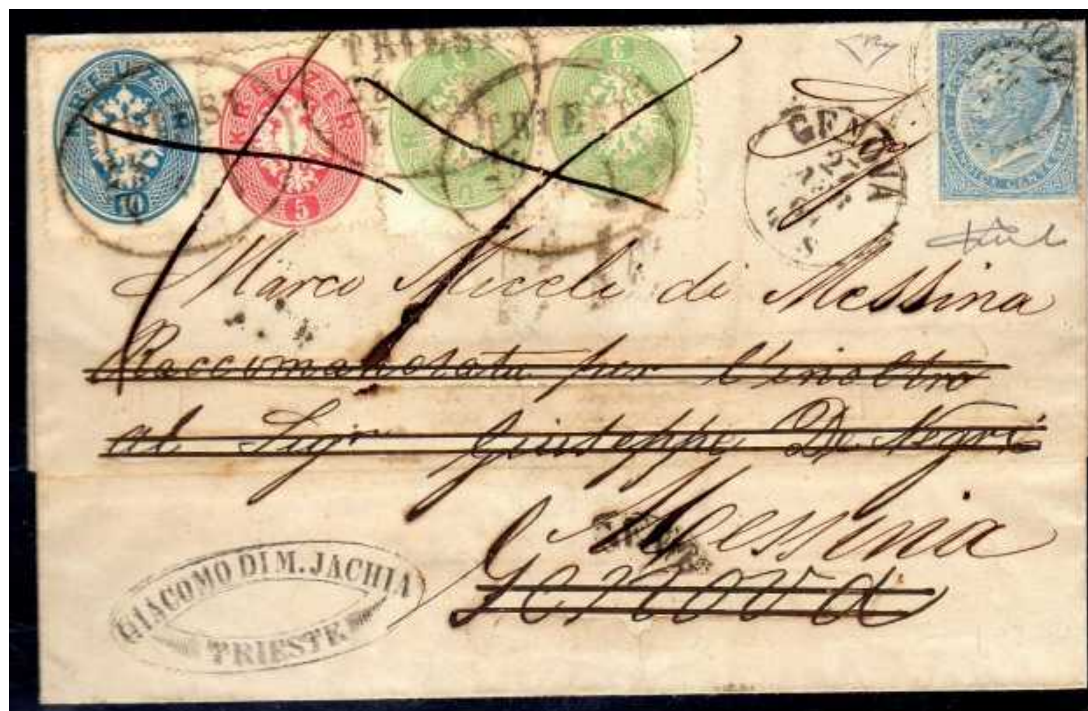 KREUZER 10
KREUZER 5
3
3
TRIEST
TRIEST
TRIEST
GENOVA
27
Marco Miceli di Messina
Raccomandata per l'inoltro
al Sigr Giuseppe De Negri
Messina
Genova
GIACOMO DI M. JACHIA
TRIESTE